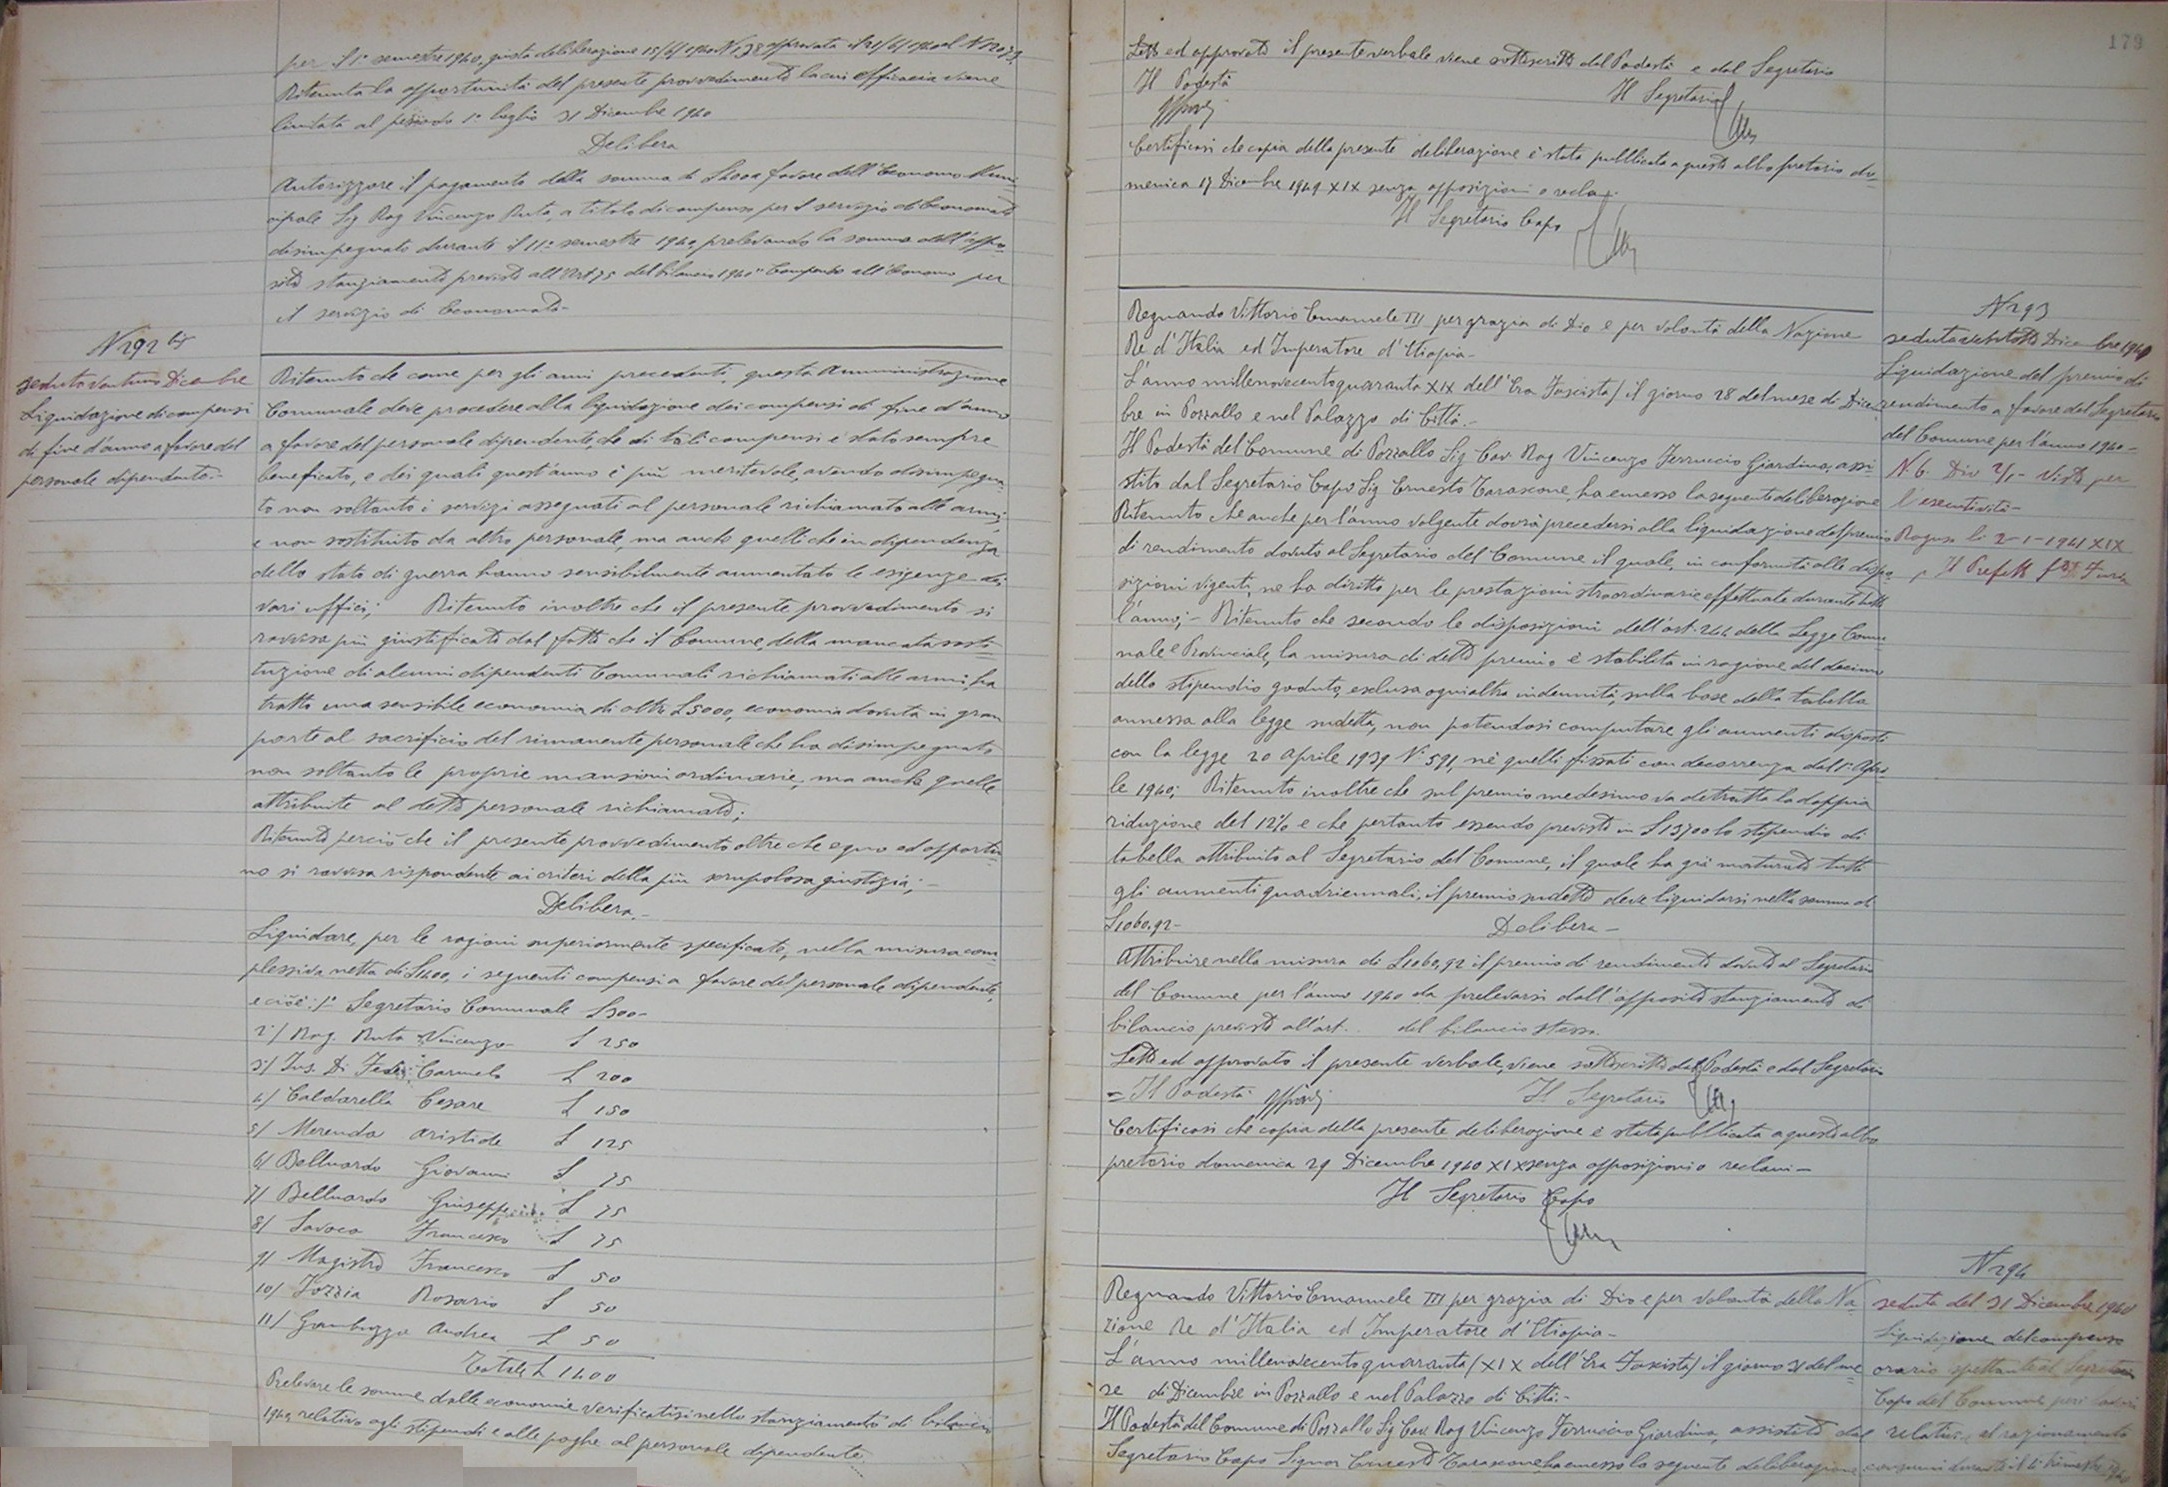 per il 1° semestre 1940, giusta deliberazione 15/6/1940 N 138 approvata il 21/6/1940 al N
Ritenuta la opportunità del presente provvedimento la cui efficacia viene
limitata al periodo 1° luglio 31 Dicembre 1940
Delibera
Autorizzare il pagamento della somma di L 400 a favore dell'Economo Muni-
cipale Sig Rag Vincenzo Ruta, a titolo di compenso per il servizio di Economato
disimpegnato durante il II° semestre 1940, prelevando la somma dall'appo-
sito stanziamento previsto all'Art 75 del bilancio 1940 "Compenso all'Economo per
il servizio di Economato-
N 292 bis
seduta ventuno Dicembre
Liquidazione di compensi
di fine d'anno a favore del
personale dipendente.-
Ritenuto che come per gli anni precedenti, questa Amministrazione
Comunale deve procedere alla liquidazione dei compensi di fine d'anno
a favore del personale dipendente, che di tali compensi è stato sempre
beneficato, e dei quali quest'anno è più meritevole, avendo disimpegna-
to non soltanto i servizi assegnati al personale richiamato alle armi,
e non sostituito da altro personale, ma anche quelli che in dipendenza
dello stato di guerra hanno sensibilmente aumentato le esigenze dei
vari uffici; Ritenuto inoltre che il presente provvedimento si
ravvisa più giustificato dal fatto che il Comune, della mancata sosti-
tuzione di alcuni dipendenti Comunali richiamati alle armi, ha
tratto una sensibile economia di oltre L 5000, economia dovuta in gran
parte al sacrificio del rimanente personale che ha disimpegnato
non soltanto le proprie mansioni ordinarie, ma anche quelle
attribuite al detto personale richiamato;
Ritenuto perciò che il presente provvedimento oltre che equo ed opportu-
no si ravvisa rispondente ai criteri della più scrupolosa giustizia;-
Delibera.-
Liquidare, per le ragioni superiormente specificate, nella misura com-
plessiva netta di L 1400, i seguenti compensi a favore del personale dipendente,
e cioè: 1° Segretario Comunale L 300-
2°/ Rag. Ruta Vincenzo L 250
3°/ Ins. Di Fede Carmelo L 200
4/ Caldarella Cesare L 150
5/ Merenda Aristide L 125
6/ Belluardo Giovanni L 75
7/ Belluardo Giuseppe L 75
8/ Savoca Francesco L 75
9/ Magistro Francesco L 50
10/ Iozzia Rosario L 50
11/ Gambuzza Andrea L 50
Totale L 1400
Prelevare le somme dalle economie verificatisi nello stanziamento di bilancio
1940 relativo agli stipendi e alle paghe al personale dipendente
179
Letto ed approvato il presente verbale viene sottoscritto dal Podestà e dal Segretario
Il Podestà
Il Segretario
Certificasi che copia della presente deliberazione è stata pubblicata a questo albo pretorio do-
menica 17 Dicembre 1949 XIX senza opposizioni o reclami.
Il Segretario Capo
N 293
seduta ventotto Dicembre 1940
Liquidazione del premio di
rendimento a favore del Segretario
del Comune per l'anno 1940-
N. 6. Div 2/1- Visto per
l'esecutività-
Ragusa li 2-1-1941 XIX
Il Prefetto
Regnando Vittorio Emanuele III per grazia di Dio e per volontà della Nazione
Re d'Italia ed Imperatore d'Etiopia-
L'anno millenovecentoquaranta XIX dell'Era Fascista/ il giorno 28 del mese di Dicem-
bre in Pozzallo e nel Palazzo di Città.-
Il Podestà del Comune di Pozzallo Sig Cav. Rag Vincenzo Ferruccio Giardina, assi-
stito dal Segretario Capo Sig Ernesto Tarascone, ha emesso la seguente deliberazione
Ritenuto che anche per l'anno volgente dovrà procedersi alla liquidazione del premio
di rendimento dovuto al Segretario del Comune il quale, in conformità alle dispo-
sizioni vigenti, ne ha diritto per le prestazioni straordinarie effettuate durante tutto
l'anno;- Ritenuto che secondo le disposizioni dell'art. 244 della Legge Comu-
nale e Provinciale, la misura di detto premio è stabilita in ragione del decimo
dello stipendio goduto, esclusa ogni altra indennità, sulla base della tabella
annessa alla legge sudetta, non potendosi computare gli aumenti disposti
con la legge 20 Aprile 1939 N° 591, nè quelli fissati con decorrenza dal 1° Apri-
le 1940; Ritenuto inoltre che sul premio medesimo va detratta la doppia
riduzione del 12% e che pertanto essendo previsto in L 13700 lo stipendio di
tabella attribuito al Segretario del Comune, il quale ha già maturato tutti
gli aumenti quadriennali, il premio sudetto deve liquidarsi nella somma di
L 1060,92-
Delibera-
Attribuire nella misura di L 1060,92 il premio di rendimento dovuto al Segretario
del Comune per l'anno 1940 da prelevarsi dall'apposito stanziamento di
bilancio previsto all'art. del bilancio stesso.
Letto ed approvato il presente verbale, viene sottoscritto dal Podestà e dal Segretario
= Il Podestà
Il Segretario
Certificasi che copia della presente deliberazione è stata pubblicata a questo albo
pretorio domenica 29 Dicembre 1940 XIX senza opposizioni o reclami-
Il Segretario Capo
N 294
seduta del 31 Dicembre 1940
Liquidazione del compenso
orario spettante al Segretario
Capo del Comune per i lavori
relativi al razionamento
consumi durante il II trimestre 1940
Regnando Vittorio Emanuele III per grazia di Dio e per volontà della Na-
zione Re d'Italia ed Imperatore d'Etiopia-
L'anno millenovecentoquaranta (XIX dell'Era Fascista/ il giorno 31 del me-
se di Dicembre in Pozzallo e nel Palazzo di Città.-
Il Podestà del Comune di Pozzallo Sig Cav Rag Vincenzo Ferruccio Giardina, assistito dal
Segretario Capo Signor Ernesto Tarascone ha emesso la seguente deliberazione